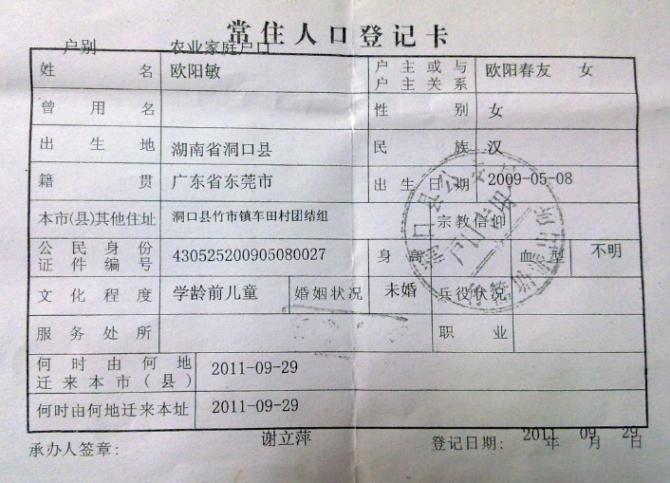 常住人口登记卡
户别 农业家庭户口
姓名 欧阳敏 户主或与户主关系 欧阳春友 女
曾用名 性别 女
出生地 湖南省洞口县 民族 汉
籍贯 广东省东莞市 出生日期 2009-05-08
本市(县)其他住址 洞口县竹市镇车田村团结组 宗教信仰
公民身份证件编号 430525200905080027 身高 血型 不明
文化程度 学龄前儿童 婚姻状况 未婚 兵役状况
服务处所 职业
何时由何地迁来本市(县) 2011-09-29
何时由何地迁来本址 2011-09-29
承办人签章: 谢立萍 登记日期: 2011年09月29日